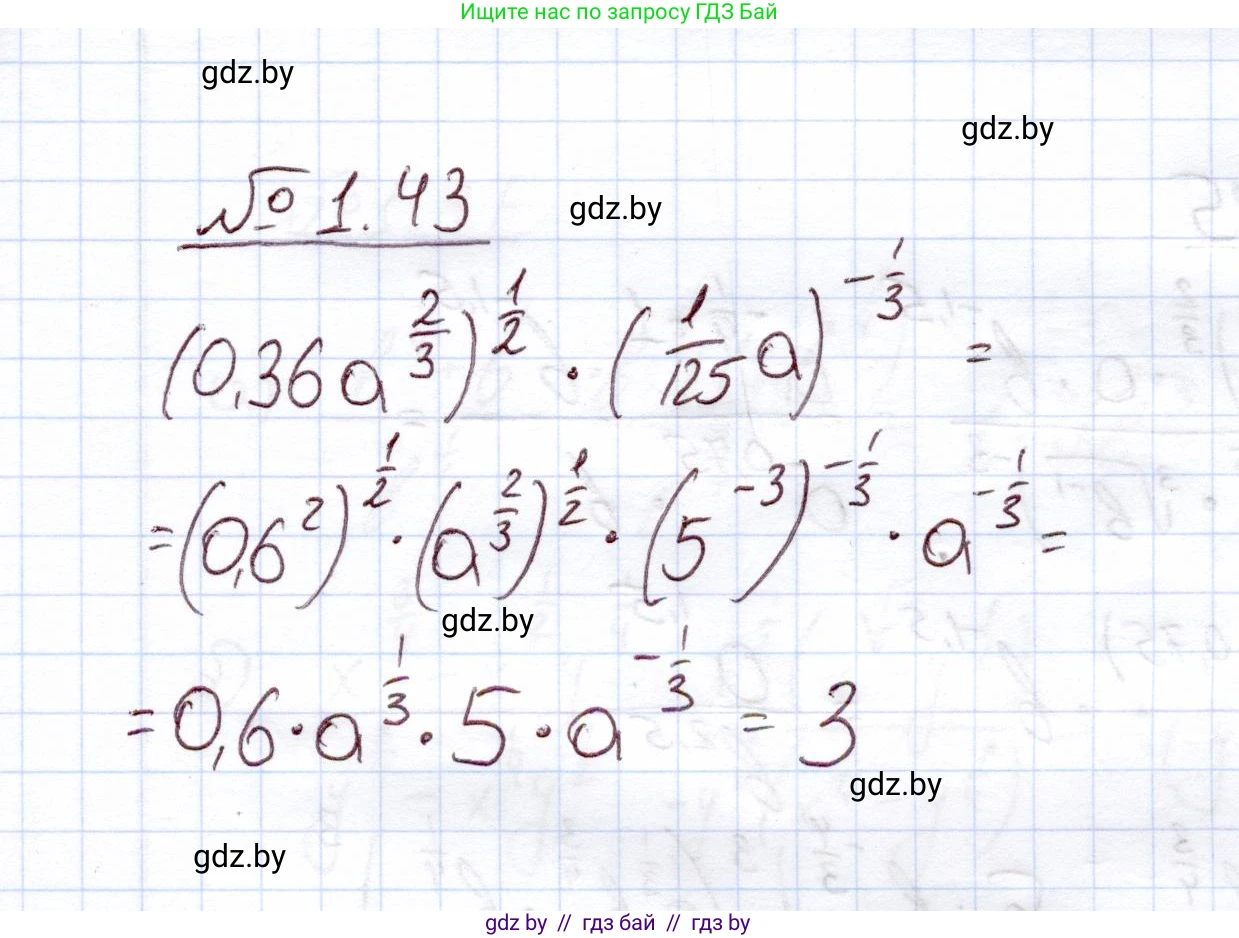 Ищите нас по запросу ГДЗ Бай
gdz.by
gdz.by
№ 1.43
gdz.by
(0,36 a^(2/3))^(1/2) · (1/125 a)^(-1/3) =
= (0,6^2)^(1/2) · (a^(2/3))^(1/2) · (5^(-3))^(-1/3) · a^(-1/3) =
gdz.by
= 0,6 · a^(1/3) · 5 · a^(-1/3) = 3
gdz.by
gdz.by
gdz by // гдз бай // гдз by